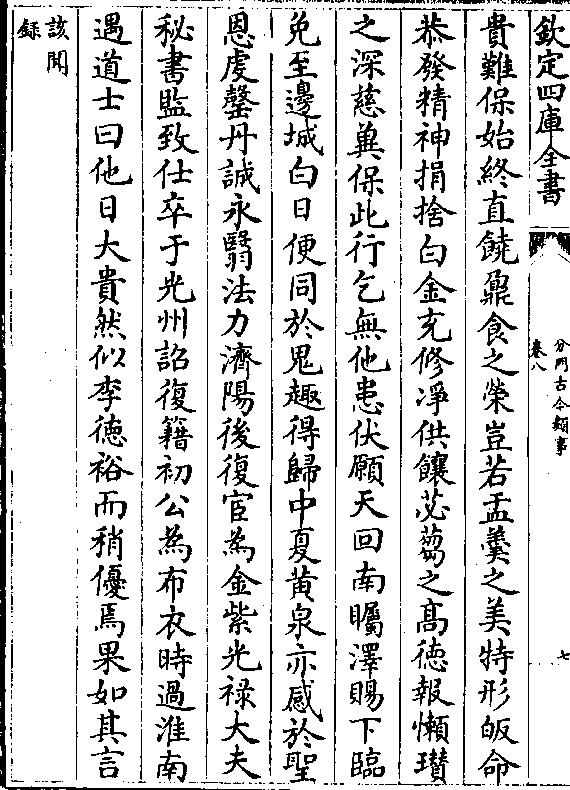 欽定四庫全書
分門古今類事
卷八
七
貴難保始終直饒鼎食之榮豈若盂羹之美特形皈命
恭發精神捐捨白金充修淨供饟苾蒭之髙德報懶瓚
之深慈冀保此行乞無他患伏願天回南矚澤賜下臨
免至邊城白日便同於鬼趣得歸中夏黄泉亦感於聖
恩虔罄丹誠永翳法力濟陽後復官為金紫光禄大夫
秘書監致仕卒于光州詔復籍初公為布衣時過淮南
遇道士曰他日大貴然似李徳裕而稍優焉果如其言
該聞
録